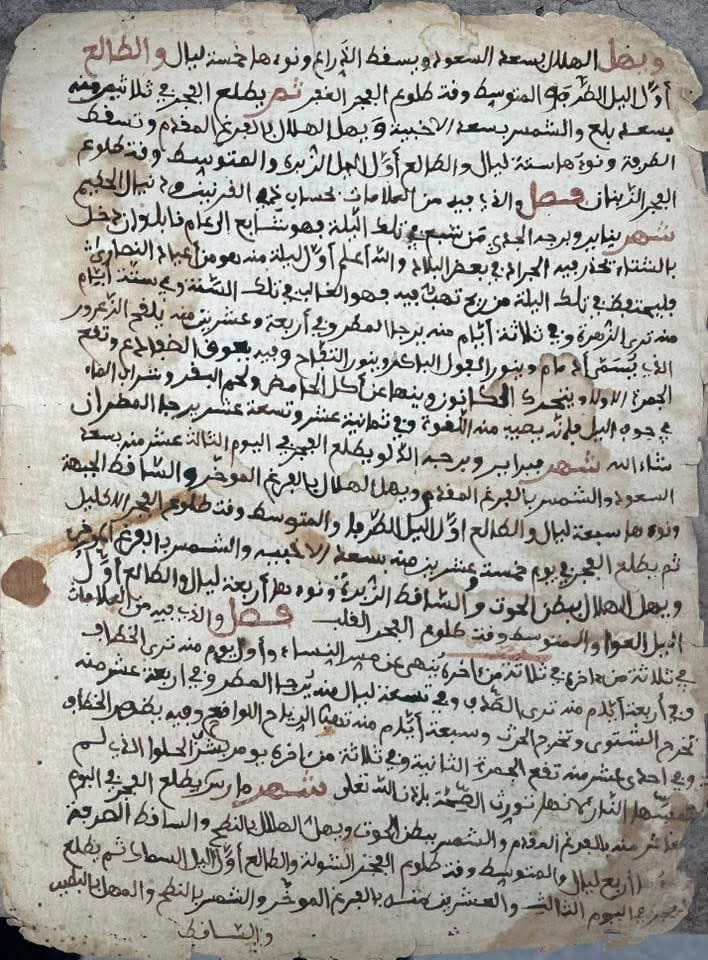 ويهل الهلال بسعد السعود ويسقط الذراع ونوءها خمسة ليال والطالع
أوّل اليل الطرفة والمتوسط وقت طلوع الفجر الغفر ثم يطلع الفجر في ثلاثين منه
بسعد بلع والشمس بسعد الاخبية ويهل الهلال بالفرغ المقدم وتسقط
الطرفة ونوءها ستة ليال والطالع أوّل اليل الزبرة والمتوسط وقت طلوع
الفجر الزبنان فصل والذي فيه من العلامات لحساب ذي القرنين ودنيال الحكيم
شهر يناير وبرجه الجدي من شبع في تلك الليلة فهو شابع الى عام قابل وان دخل
بالشتاء تحذر فيه الجراد في بعض البلاد والله أعلم أوّل ليلة منه هو من أعياد النصارى
فليحتفظ في تلك الليلة من ريح تهب فيه فهو الغالب في تلك السنة وفي ستة أيام
منه ترى الزهرة وفي ثلاثة أيّام منه يرجا المطر وفي أربعة وعشرين منه يلقح الزعرور
الذي يُسَمّى أدمام وينور الفول الباكر وينور التفاح وفيه يعوف الضفادع وتقع
الجمرة الاولا ويتحرك وينها عن أكل الحامض ولحم البقر وشراب الماء
في جوف اليل فإنه يصيبه منه اللقوة وفي ثمانية عشر وتسعة عشر يرجا المطر ان
شاء الله شهر فبراير وبرجه الدلو يطلع الفجر في اليوم الثالث عشر منه بسعد
السعود والشمس بالفرغ المقدم ويهل الهلال بالفرغ الموخّر والساقط الجبهة
ونوءها سبعة ليال والطالع اوّل اليل الطرفا والمتوسط وقت طلوع الفجر الاكليل
ثم يطلع الفجر في يوم خمسة وعشرين منه بسعد الاخبيه والشمس بالفرغ الموخر
ويهل الهلال ببطن الحوت والساقط الزبرة ونوءها أربعة ليال والطالع أوّل
اليل العوا والمتوسط وقت طلوع الفجر القلب فصل والذي فيه من العلامات
في ثلاثة من اخره في ثلاثة من اخره يُنهى عن النساء وأول يوم منه ترى الخطاف
وفي أربعة أيّام منه ترى وفي تسعة ليال منه يُرجا المطر وفي اربعة عشر منه
تحرم الشتوى وتحرم الحرث وسبعة أيّام منه تهب الرياح اللواقح وفيه يظهر الخطاف
وفي احدى عشر منه تقع الجمرة الثانية وفي ثلاثة من اخره يوم الذي لم
النار لانها تورث بإذن الله تعلى شهر مارس يطلع الفجر في اليوم
منه بالفرغ المقدم والشمس ببطن الحوت ويهل الهلال بالنطح والساقط الصرفة
أربع ليال والمتوسط وقت طلوع الفجر الشولة والطالع أوّل اليل السماك ثم يطلع
في اليوم الثالث والعشرين منه بالفرغ الموخّر والشمس بالنطح والمهل بالبطين
والساقط